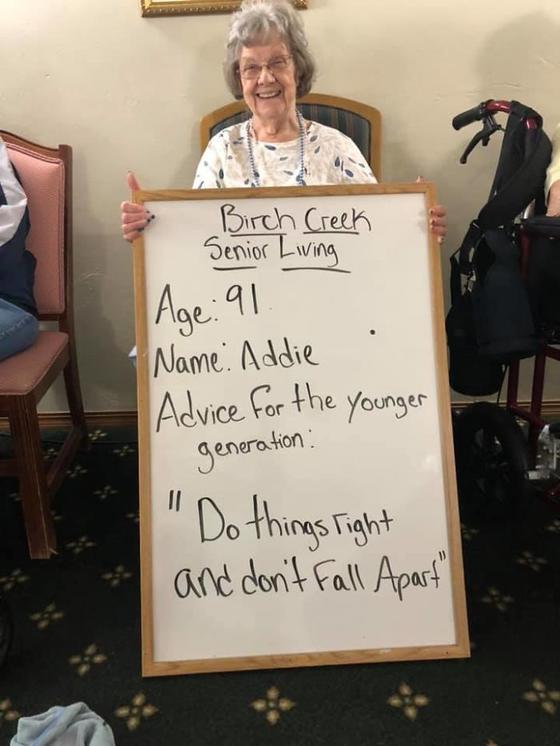 Birch Creek
Senior Living
Age: 91
Name: Addie
Advice For the younger
generation:
"Do things right
and don't Fall Apart"